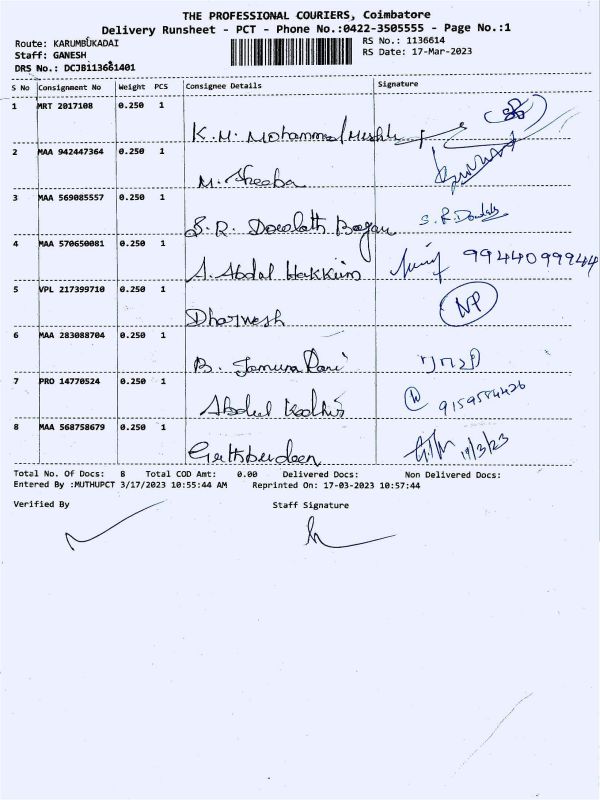 THE PROFESSIONAL COURIERS, Coimbatore
Delivery Runsheet - PCT - Phone No.:0422-3505555 - Page No.:1
Route: KARUMBUKADAI
RS No.: 1136614
Staff: GANESH
RS Date: 17-Mar-2023
DRS No.: DCJB113661401
S No Consignment No Weight PCS Consignee Details Signature
1 MRT 2017108 0.250 1
K.M. Mohammed
2 MAA 942447364 0.250 1
M. Sheeba
3 MAA 569085557 0.250 1
S.R. Dowlath Beegam S.R.Dowlath
4 MAA 570650081 0.250 1
A. Abdul Hakkim 9944099944
5 VPL 217399710 0.250 1
Dharnesh NP
6 MAA 283088704 0.250 1
B. Jamuna Rani
7 PRO 14770524 0.250 1
Abdul Kadhir 9159584426
8 MAA 568758679 0.250 1
19/3/23
Total No. Of Docs: 8 Total COD Amt: 0.00 Delivered Docs: Non Delivered Docs:
Entered By :MUTHUPCT 3/17/2023 10:55:44 AM Reprinted On: 17-03-2023 10:57:44
Verified By Staff Signature